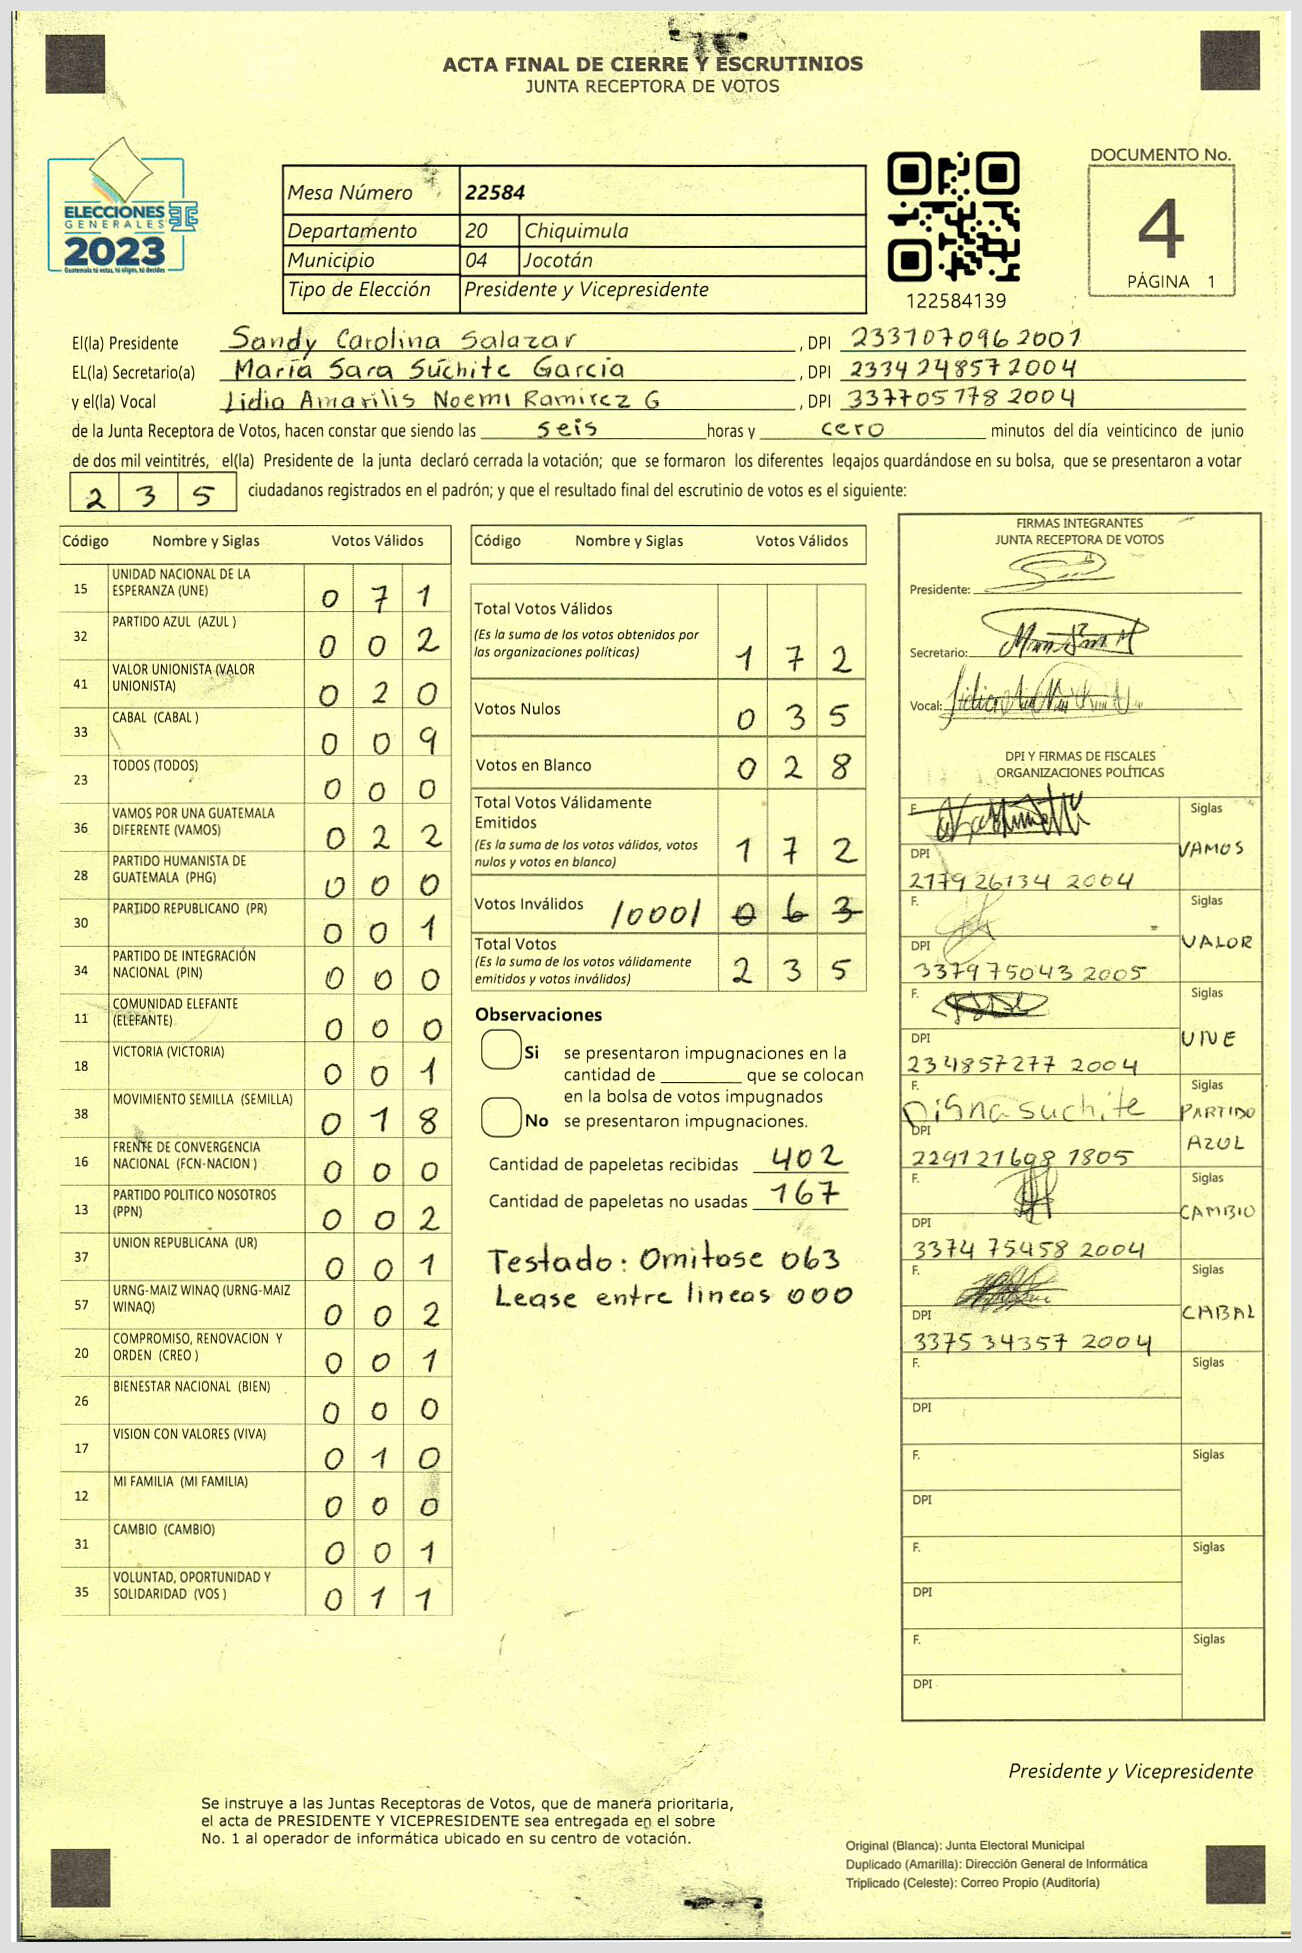 ACTA FINAL DE CIERRE Y ESCRUTINIOS
JUNTA RECEPTORA DE VOTOS
ELECCIONES
GENERALES
2023
Guatemala tú votas, tú eliges, tú decides
Mesa Número 22584
Departamento 20 Chiquimula
Municipio 04 Jocotán
Tipo de Elección Presidente y Vicepresidente
122584139
DOCUMENTO No.
4
PÁGINA 1
El(la) Presidente Sandy Carolina Salazar , DPI 233707096 2001
EL(la) Secretario(a) María Sara Súchite García , DPI 2334 24857 2004
y el(la) Vocal Lidia Amarilis Noemí Ramirez G , DPI 337705778 2004
de la Junta Receptora de Votos, hacen constar que siendo las seis horas y cero minutos del día veinticinco de junio
de dos mil veintitrés, el(la) Presidente de la junta declaró cerrada la votación; que se formaron los diferentes legajos guardándose en su bolsa, que se presentaron a votar
2 3 5 ciudadanos registrados en el padrón; y que el resultado final del escrutinio de votos es el siguiente:
Código Nombre y Siglas Votos Válidos
15 UNIDAD NACIONAL DE LA ESPERANZA (UNE) 0 7 1
32 PARTIDO AZUL (AZUL ) 0 0 2
41 VALOR UNIONISTA (VALOR UNIONISTA) 0 2 0
33 CABAL (CABAL ) 0 0 9
23 TODOS (TODOS) 0 0 0
36 VAMOS POR UNA GUATEMALA DIFERENTE (VAMOS) 0 2 2
28 PARTIDO HUMANISTA DE GUATEMALA (PHG) 0 0 0
30 PARTIDO REPUBLICANO (PR) 0 0 1
34 PARTIDO DE INTEGRACIÓN NACIONAL (PIN) 0 0 0
11 COMUNIDAD ELEFANTE (ELEFANTE) 0 0 0
18 VICTORIA (VICTORIA) 0 0 1
38 MOVIMIENTO SEMILLA (SEMILLA) 0 1 8
16 FRENTE DE CONVERGENCIA NACIONAL (FCN-NACION ) 0 0 0
13 PARTIDO POLITICO NOSOTROS (PPN) 0 0 2
37 UNION REPUBLICANA (UR) 0 0 1
57 URNG-MAIZ WINAQ (URNG-MAIZ WINAQ) 0 0 2
20 COMPROMISO, RENOVACION Y ORDEN (CREO ) 0 0 1
26 BIENESTAR NACIONAL (BIEN) 0 0 0
17 VISION CON VALORES (VIVA) 0 1 0
12 MI FAMILIA (MI FAMILIA) 0 0 0
31 CAMBIO (CAMBIO) 0 0 1
35 VOLUNTAD, OPORTUNIDAD Y SOLIDARIDAD (VOS ) 0 1 1
Código Nombre y Siglas Votos Válidos
Total Votos Válidos
(Es la suma de los votos obtenidos por
las organizaciones políticas) 1 7 2
Votos Nulos 0 3 5
Votos en Blanco 0 2 8
Total Votos Válidamente
Emitidos
(Es la suma de los votos válidos, votos
nulos y votos en blanco) 1 7 2
Votos Inválidos /000/ 0 6 3
Total Votos
(Es la suma de los votos válidamente
emitidos y votos inválidos) 2 3 5
Observaciones
Si se presentaron impugnaciones en la
cantidad de ________ que se colocan
en la bolsa de votos impugnados
No se presentaron impugnaciones.
Cantidad de papeletas recibidas 402
Cantidad de papeletas no usadas 167
Testado: Omitase 063
Lease entre lineas 000
FIRMAS INTEGRANTES
JUNTA RECEPTORA DE VOTOS
Presidente:
Secretario:
Vocal:
DPI Y FIRMAS DE FISCALES
ORGANIZACIONES POLÍTICAS
F. Siglas
VAMOS
DPI
2179 26134 2004
F. Siglas
VALOR
DPI
337975043 2005
F. Siglas
UNE
DPI
234857277 2004
F. Digna suchite Siglas
PARTIDO
AZUL
DPI
229121698 1805
F. Siglas
CAMBIO
DPI
3374 75458 2004
F. Siglas
CABAL
DPI
3375 34357 2004
F. Siglas
DPI
F. Siglas
DPI
F. Siglas
DPI
F. Siglas
DPI
Presidente y Vicepresidente
Se instruye a las Juntas Receptoras de Votos, que de manera prioritaria,
el acta de PRESIDENTE Y VICEPRESIDENTE sea entregada en el sobre
No. 1 al operador de informática ubicado en su centro de votación.
Original (Blanca): Junta Electoral Municipal
Duplicado (Amarilla): Dirección General de Informática
Triplicado (Celeste): Correo Propio (Auditoría)